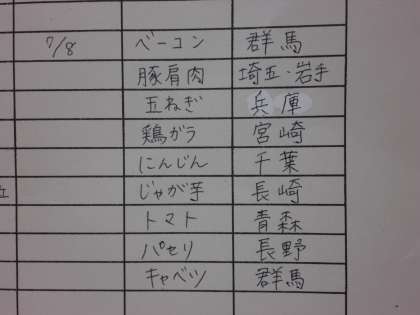 7/8 ベーコン 群馬
豚肩肉 埼玉・岩手
玉ねぎ 兵庫
鶏ガラ 宮崎
にんじん 千葉
じゃが芋 長崎
トマト 青森
パセリ 長野
キャベツ 群馬